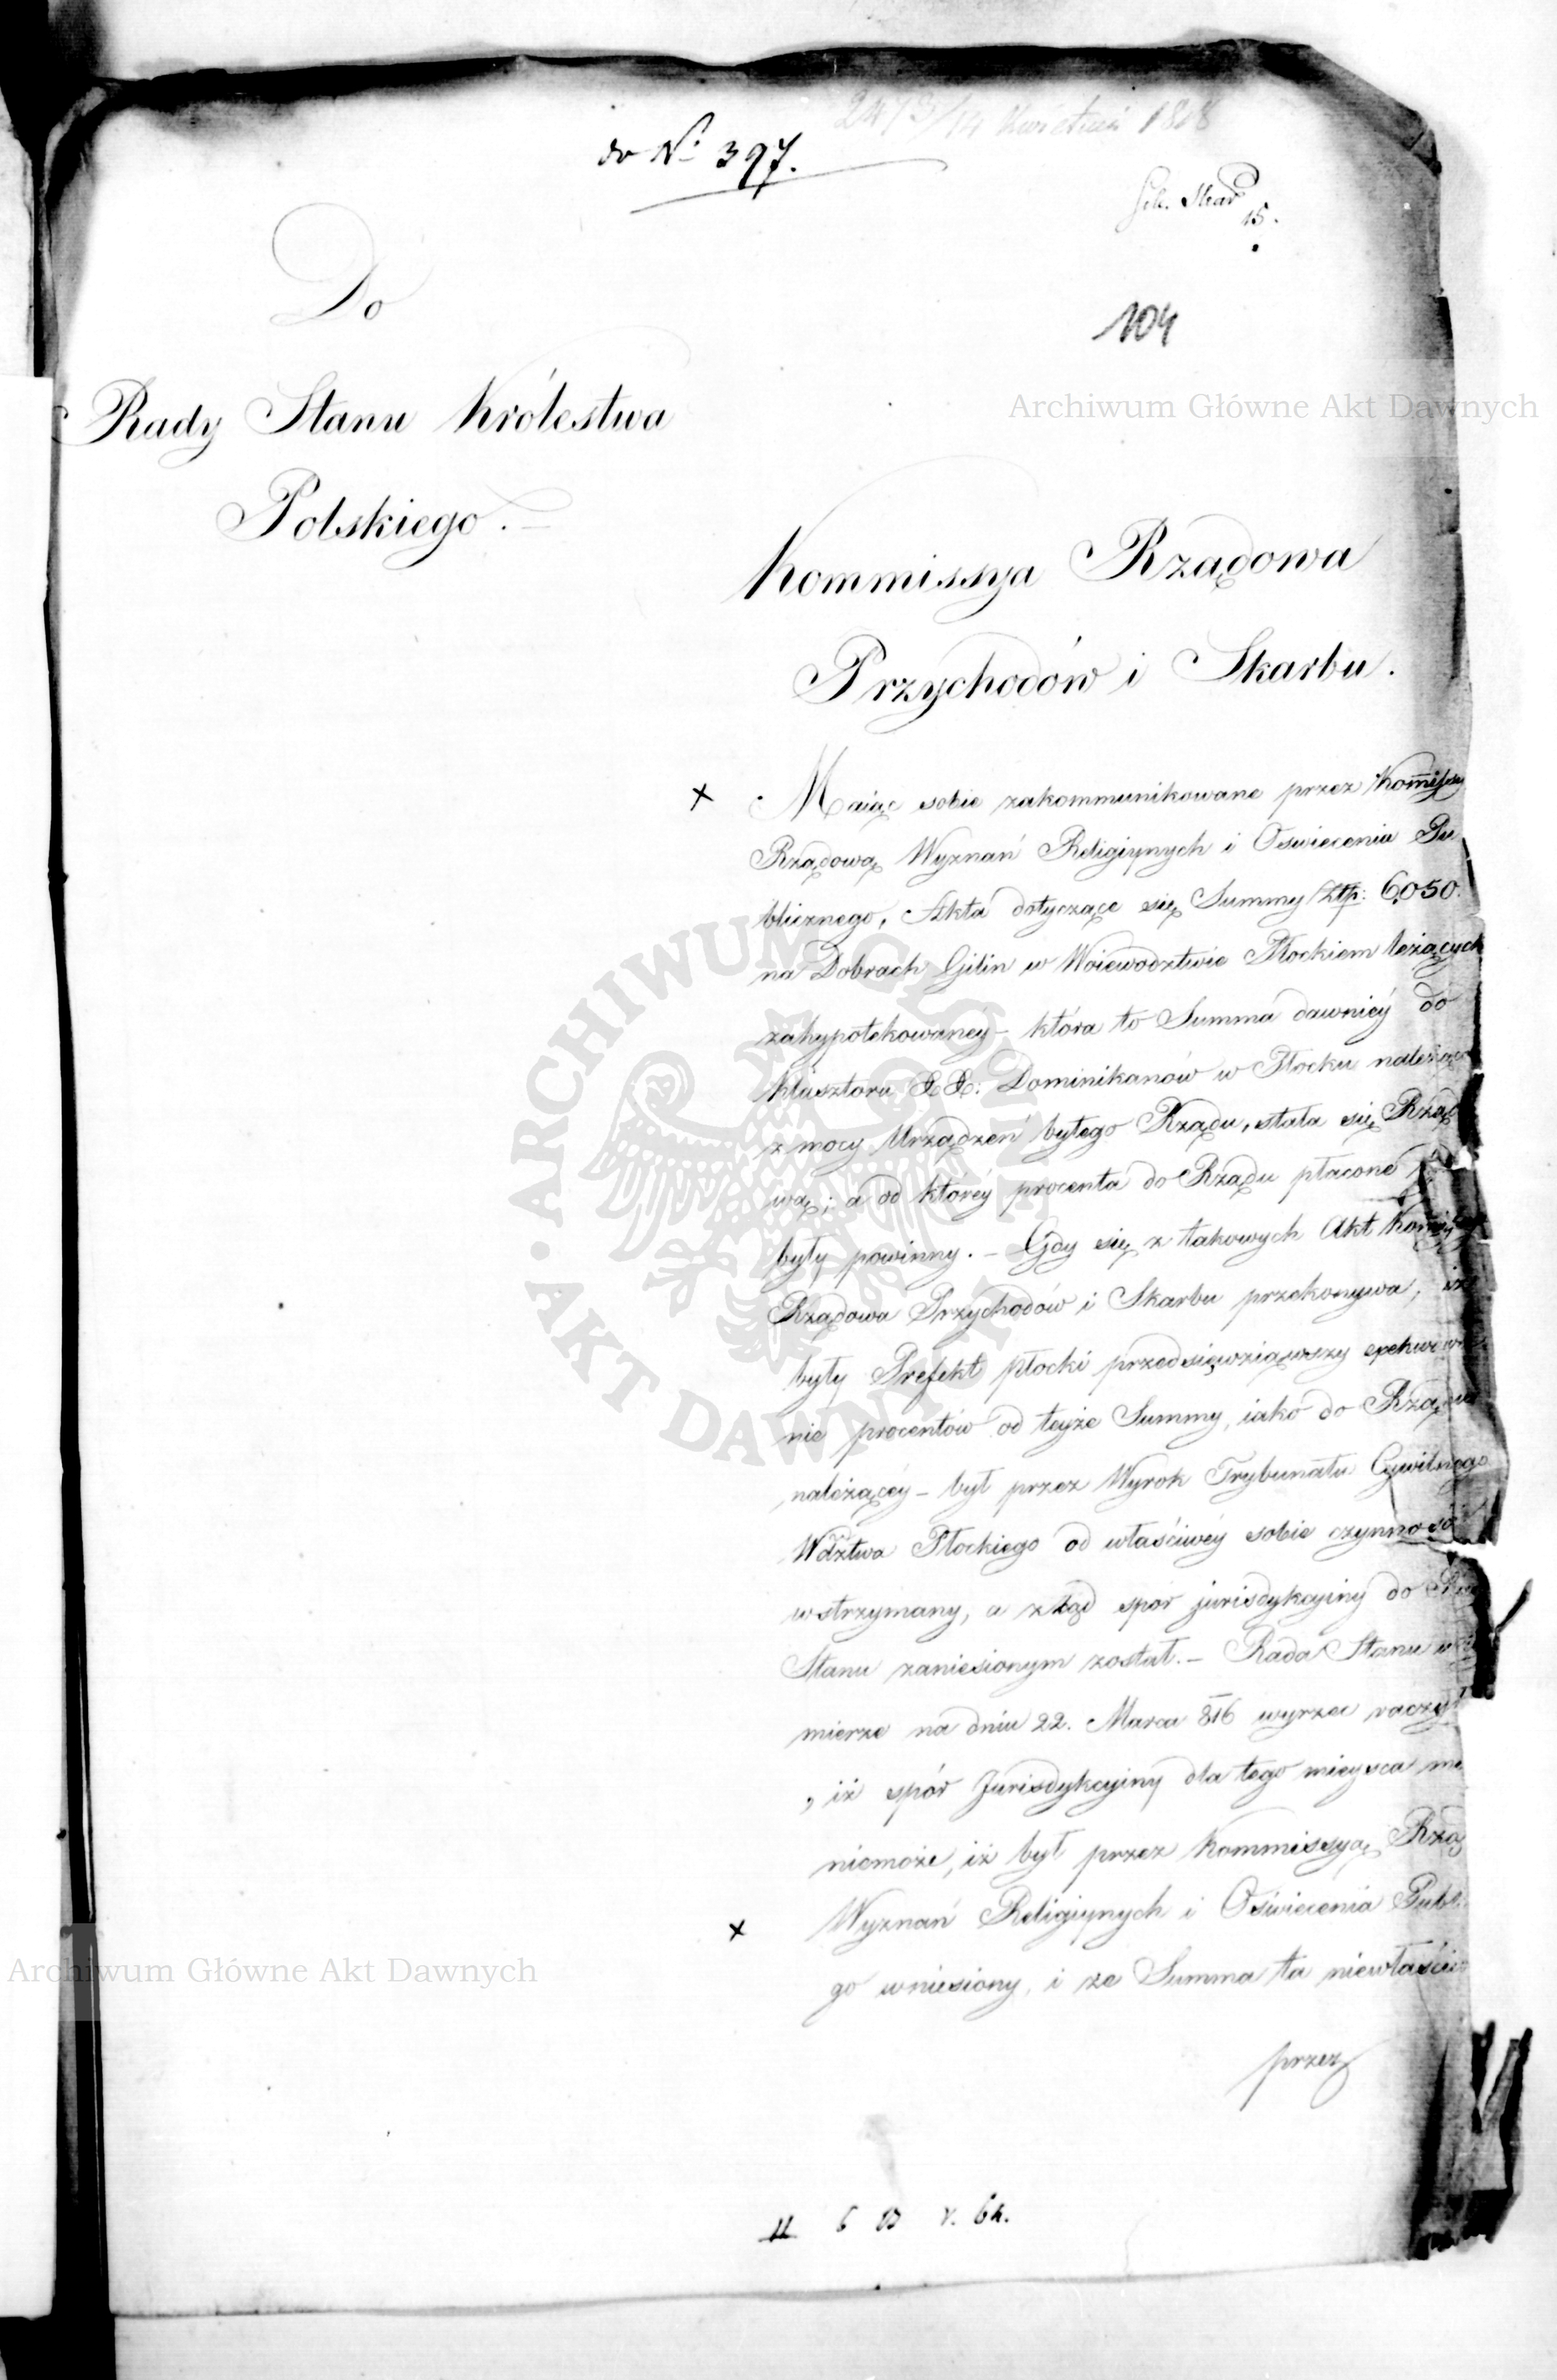 do No 397.
14 Kwietnia 1818
15.
Do
104
Rady Stanu Królestwa
Polskiego.
Archiwum Główne Akt Dawnych
Kommissya Rządowa
Przychodów i Skarbu.
x Maiąc sobie zakommunikowane przez
Rządową Wyznań Religiynych i Oswiecenia Pu
blicznego, Akta dotyczące się Summy Złp: 6,050.
na Dobrach Gilin w Woiewodztwie Płockiem leżących
zahypotekowaney – która to Summa dawniey do
klasztoru XX: Dominikanów w Płocku
z mocy Urządzeń byłego Rządu, stała się Rządo
wą; a od którey procenta do Rządu płacone
były powinny. – Gdy się z takowych Akt
Rządowa Przychodów i Skarbu przekonywa, iż
były Prefekt płocki przedsięwziąwszy
nie procentów od teyże Summy, iako do Rządu
należącey – był przez Wyrok Trybunału Cywilnego
Wdztwa Płockiego od właściwey sobie czynności
wstrzymany, a ztąd spór jurisdykcyiny do
Stanu zaniesionym został. – Rada Stanu w
mierze na dniu 22. Marca 816 wyrzec raczył
, iż spór Jurisdykcyiny dla tego mieysca
niemoże, iż był przez Kommissyą Rzą
x Wyznań Religiynych i Oświecenia Publ.
go wniesiony, i że Summa ta
Archiwum Główne Akt Dawnych
przez
ARCHIWUM GŁÓWNE AKT DAWNYCH